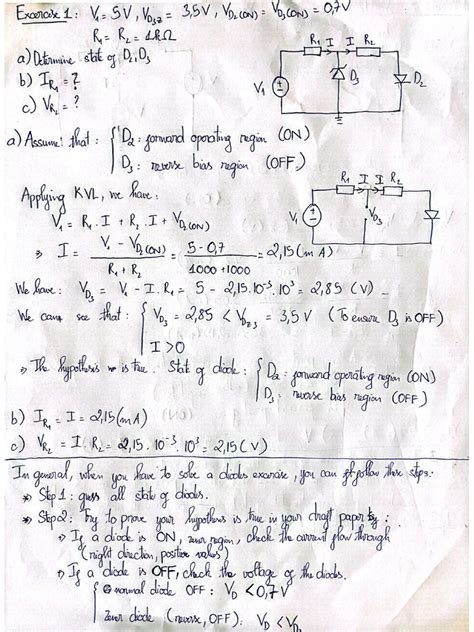 Exercise 1: V₁ = 5V, V_D3Z = 3,5V, V_D2(ON) = V_D3(ON) = 0,7V
R₁ = R₂ = 1kΩ
a) Determine state of D₂, D₃
b) I_R1 = ?
c) V_R2 = ?
R₁ I I R₂
V₁ D₃ D₂
a) Assume that: { D₂: forward operating region (ON)
D₃: reverse bias region (OFF)
Applying KVL, we have:
V₁ = R₁.I + R₂.I + V_D2(ON)
R₁ I I R₂
V₁ V_D3
⇒ I = (V₁ - V_D2(ON)) / (R₁ + R₂) = (5 - 0,7) / (1000 + 1000) = 2,15 (mA)
We have: V_D3 = V₁ - I.R₁ = 5 - 2,15.10⁻³.10³ = 2,85 (V)
We can see that: { V_D3 = 2,85 < V_DZ3 = 3,5V (To ensure D₃ is OFF)
I > 0
⇒ The hypothesis is true. State of diode: { D₂: forward operating region (ON)
D₃: reverse bias region (OFF)
b) I_R1 = I = 2,15 (mA)
c) V_R2 = I.R₂ = 2,15.10⁻³.10³ = 2,15 (V)
In general, when you have to solve a diodes exercise, you can follow these steps:
⇒ Step 1: guess all state of diodes.
⇒ Step 2: Try to prove your hypothesis is true in your draft paper by:
⇒ If a diode is ON, zener region, check the current flow through
(right direction, positive value)
⇒ If a diode is OFF, check the voltage of the diodes.
{ normal diode OFF: V_D < 0,7V
zener diode (reverse, OFF): V_D < V_Dz